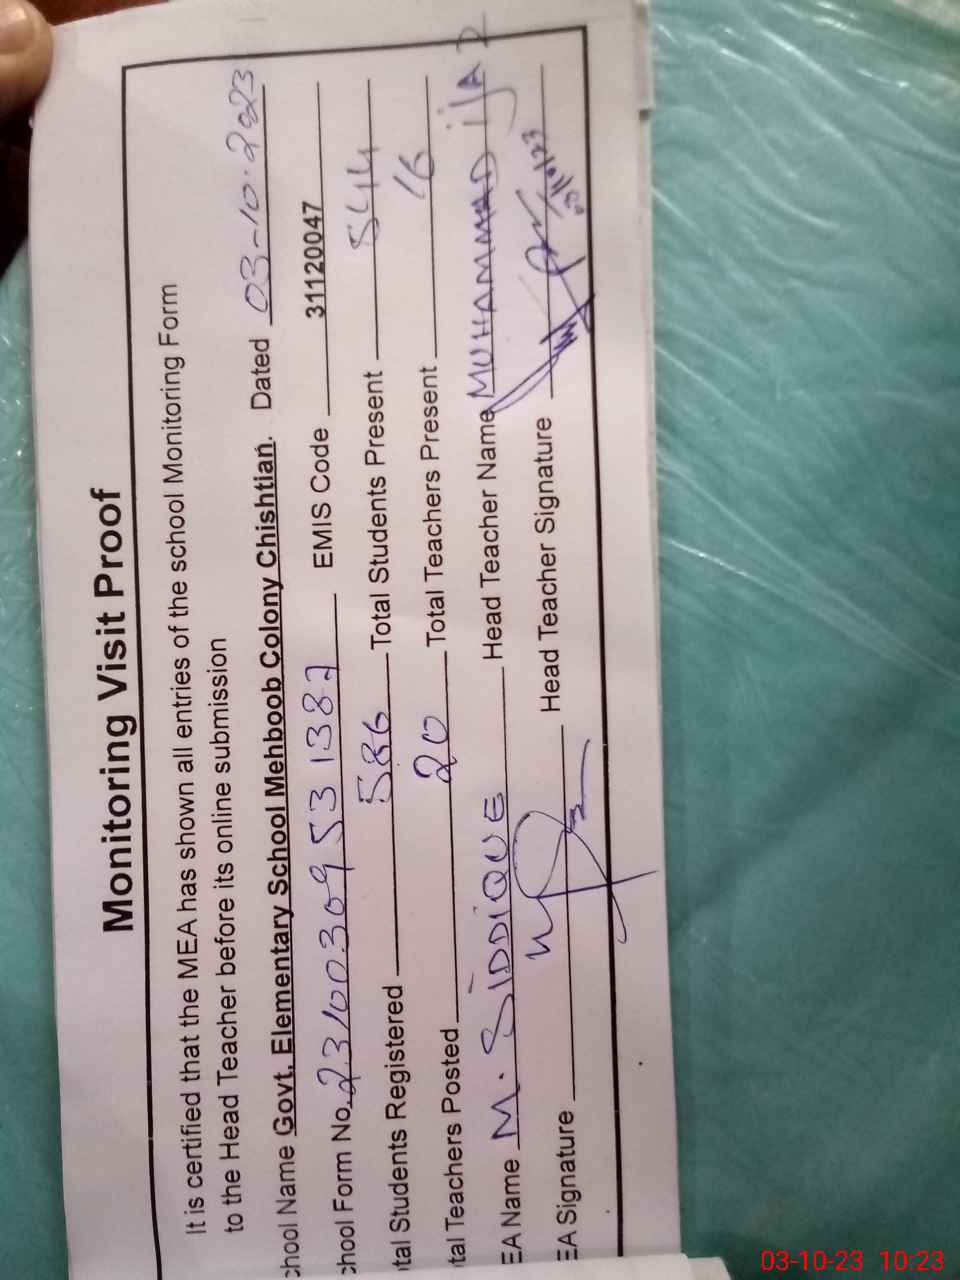 Monitoring Visit Proof
It is certified that the MEA has shown all entries of the school Monitoring Form
to the Head Teacher before its online submission
chool Name Govt. Elementary School Mehboob Colony Chishtian. Dated 03-10-2023
chool Form No. 231003095313 EMIS Code 31120047
tal Students Registered 586 Total Students Present 544
tal Teachers Posted 20 Total Teachers Present 16
EA Name M. SIDDIQUE Head Teacher Name MUHAMMAD
EA Signature Head Teacher Signature
03-10-23 10:23